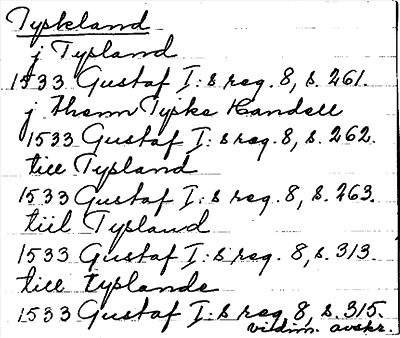 Tyskland
j Typland
1533 Gustaf I:s reg. 8, s. 261.
j thenn Tyske Handell
1533 Gustaf I:s reg. 8, s. 262.
till Typland
1533 Gustaf I:s reg. 8, s. 263.
tiil Typland
1533 Gustaf I:s reg. 8, s. 313.
till typlande
1533 Gustaf I:s reg. 8, s. 315.
vidim. avskr.